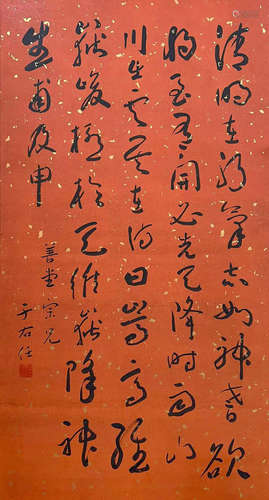 清明在躬氣志如神耆欲
將至有開必先天降時雨山
川出雲其在詩曰嵩高維
嶽峻極於天維嶽降神
生甫及申
善堂宗兄
于右任